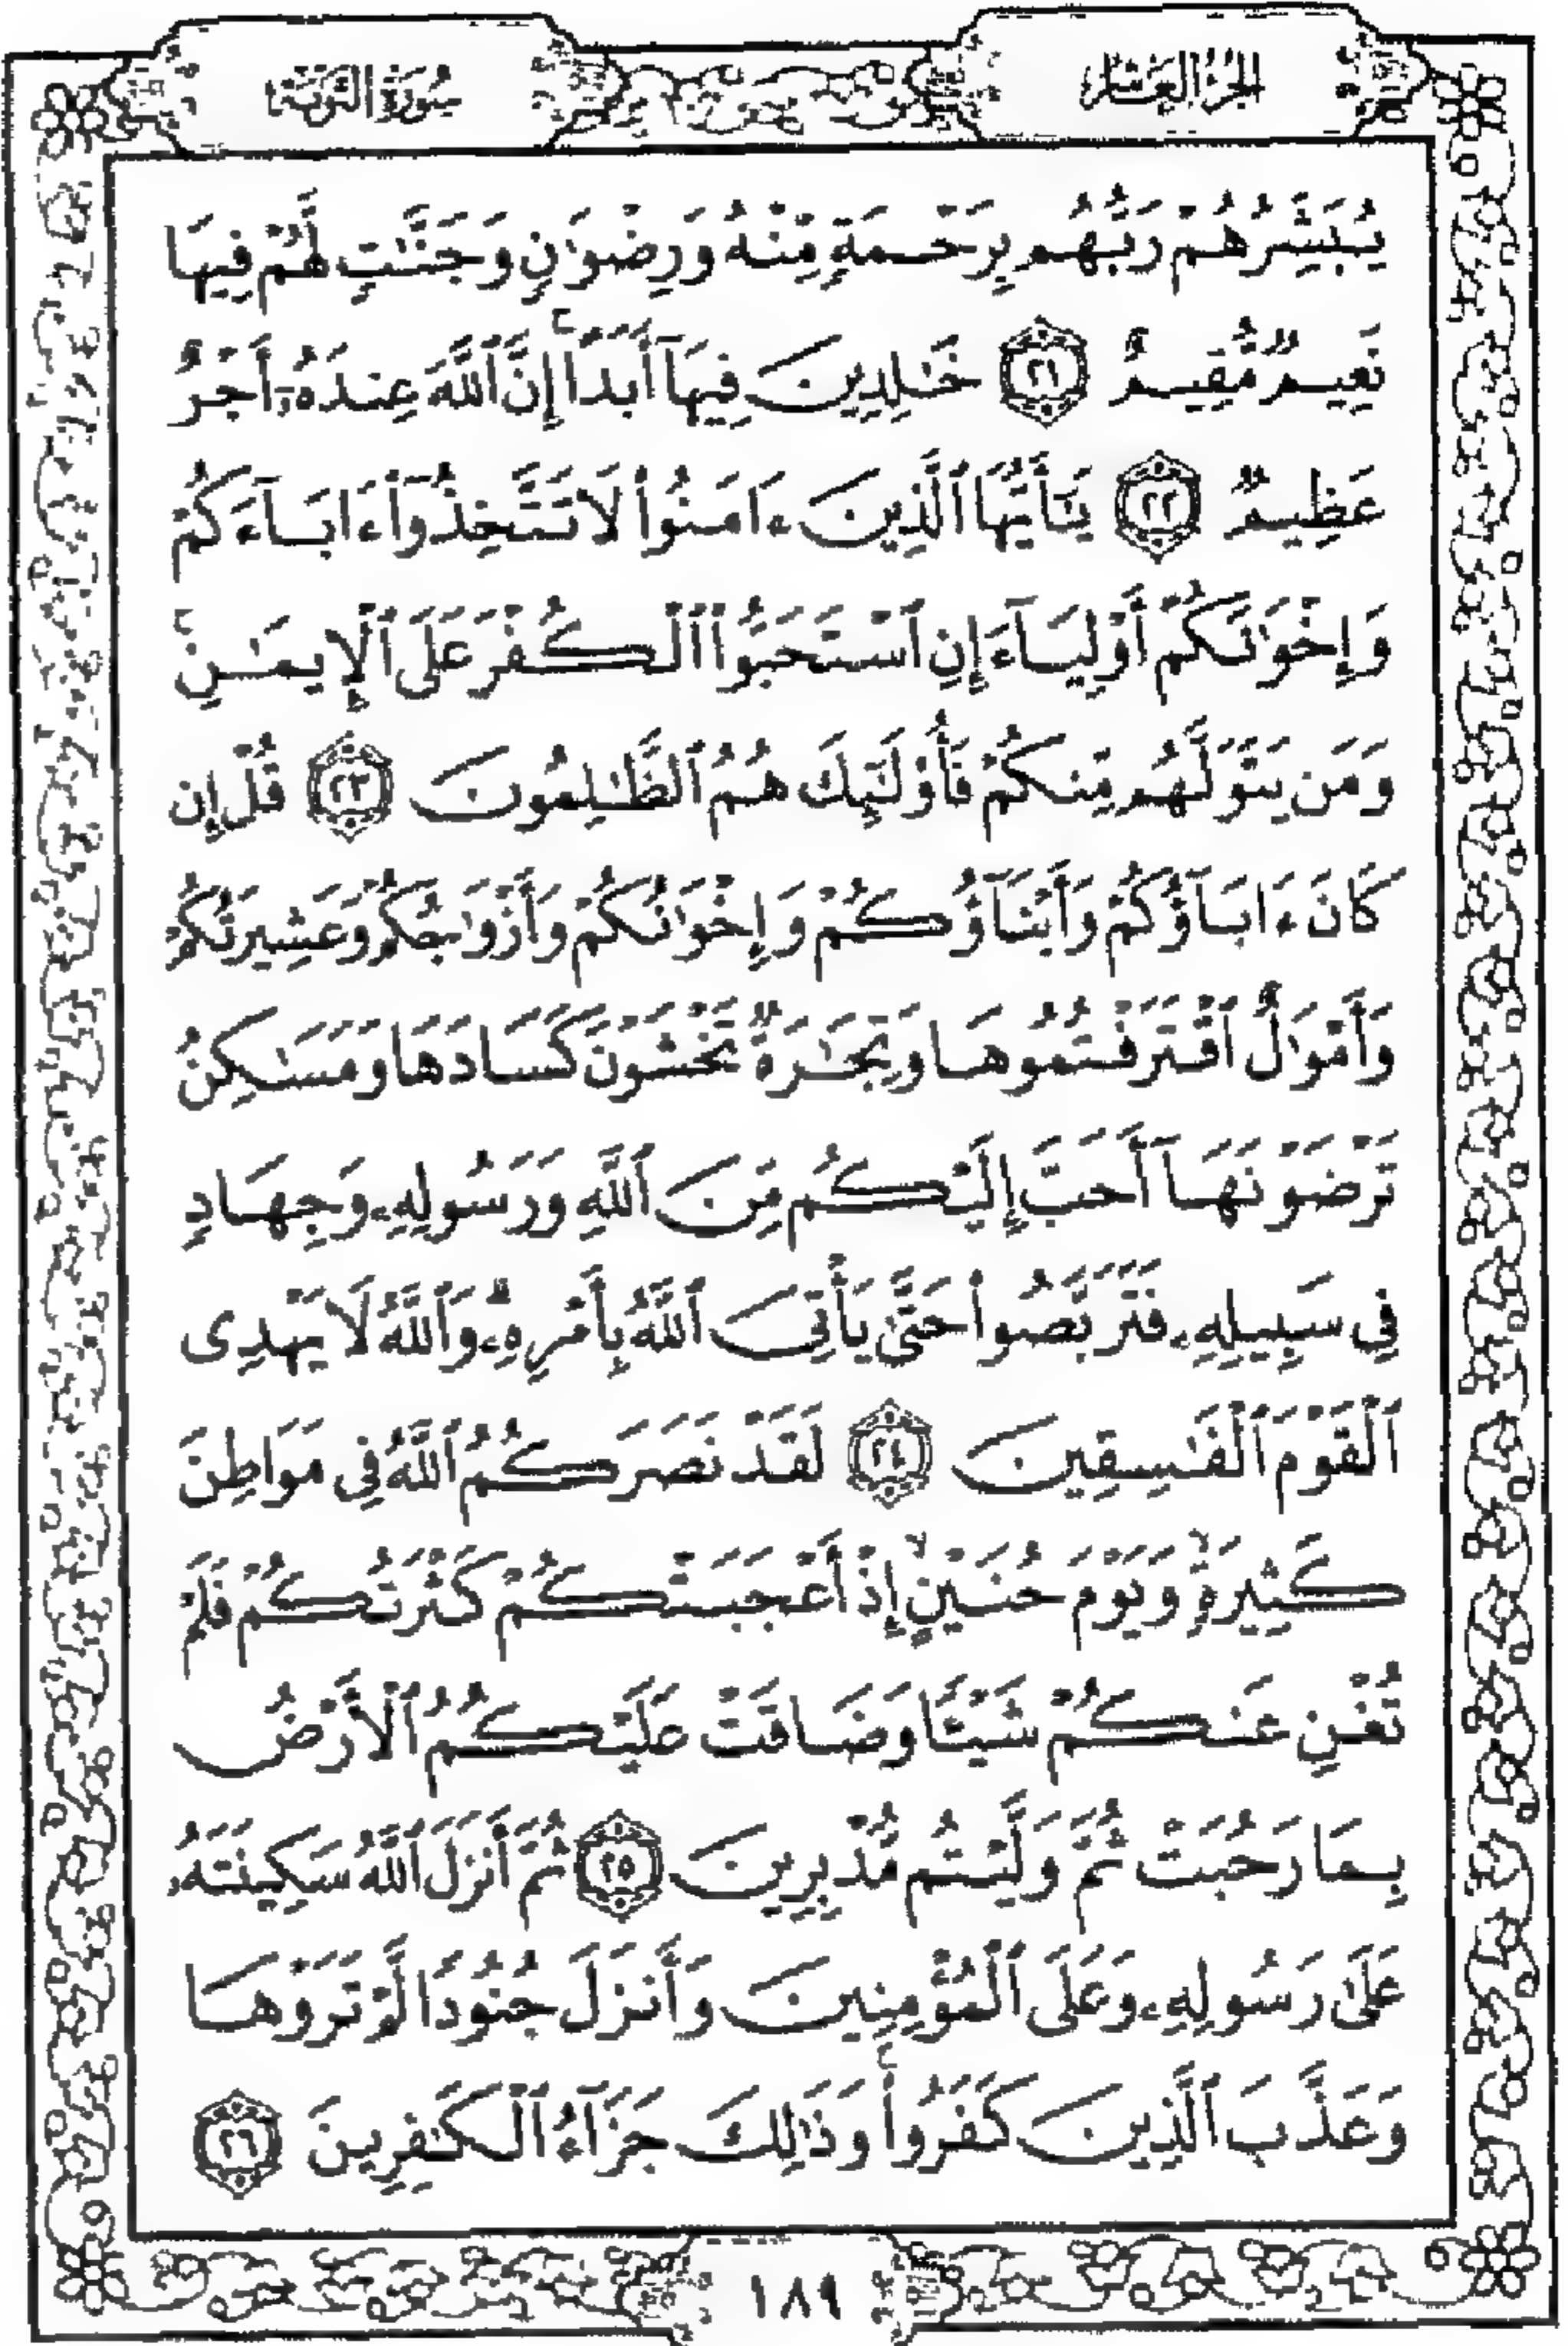 الجزء العاشر
سورة التوبة
يُبَشِّرُهُمْ رَبُّهُم بِرَحْمَةٍ مِّنْهُ وَرِضْوَٰنٍ وَجَنَّٰتٍ لَّهُمْ فِيهَا
نَعِيمٌ مُّقِيمٌ ﴿٢١﴾ خَٰلِدِينَ فِيهَآ أَبَدًا ۚ إِنَّ ٱللَّهَ عِندَهُۥٓ أَجْرٌ
عَظِيمٌ ﴿٢٢﴾ يَٰٓأَيُّهَا ٱلَّذِينَ ءَامَنُوا۟ لَا تَتَّخِذُوٓا۟ ءَابَآءَكُمْ
وَإِخْوَٰنَكُمْ أَوْلِيَآءَ إِنِ ٱسْتَحَبُّوا۟ ٱلْكُفْرَ عَلَى ٱلْإِيمَٰنِ ۚ
وَمَن يَتَوَلَّهُم مِّنكُمْ فَأُو۟لَٰٓئِكَ هُمُ ٱلظَّٰلِمُونَ ﴿٢٣﴾ قُلْ إِن
كَانَ ءَابَآؤُكُمْ وَأَبْنَآؤُكُمْ وَإِخْوَٰنُكُمْ وَأَزْوَٰجُكُمْ وَعَشِيرَتُكُمْ
وَأَمْوَٰلٌ ٱقْتَرَفْتُمُوهَا وَتِجَٰرَةٌ تَخْشَوْنَ كَسَادَهَا وَمَسَٰكِنُ
تَرْضَوْنَهَآ أَحَبَّ إِلَيْكُم مِّنَ ٱللَّهِ وَرَسُولِهِۦ وَجِهَادٍ
فِى سَبِيلِهِۦ فَتَرَبَّصُوا۟ حَتَّىٰ يَأْتِىَ ٱللَّهُ بِأَمْرِهِۦ ۗ وَٱللَّهُ لَا يَهْدِى
ٱلْقَوْمَ ٱلْفَٰسِقِينَ ﴿٢٤﴾ لَقَدْ نَصَرَكُمُ ٱللَّهُ فِى مَوَاطِنَ
كَثِيرَةٍ ۙ وَيَوْمَ حُنَيْنٍ ۙ إِذْ أَعْجَبَتْكُمْ كَثْرَتُكُمْ فَلَمْ
تُغْنِ عَنكُمْ شَيْـًٔا وَضَاقَتْ عَلَيْكُمُ ٱلْأَرْضُ
بِمَا رَحُبَتْ ثُمَّ وَلَّيْتُم مُّدْبِرِينَ ﴿٢٥﴾ ثُمَّ أَنزَلَ ٱللَّهُ سَكِينَتَهُۥ
عَلَىٰ رَسُولِهِۦ وَعَلَى ٱلْمُؤْمِنِينَ وَأَنزَلَ جُنُودًا لَّمْ تَرَوْهَا
وَعَذَّبَ ٱلَّذِينَ كَفَرُوا۟ ۚ وَذَٰلِكَ جَزَآءُ ٱلْكَٰفِرِينَ ﴿٢٦﴾
١٨٩